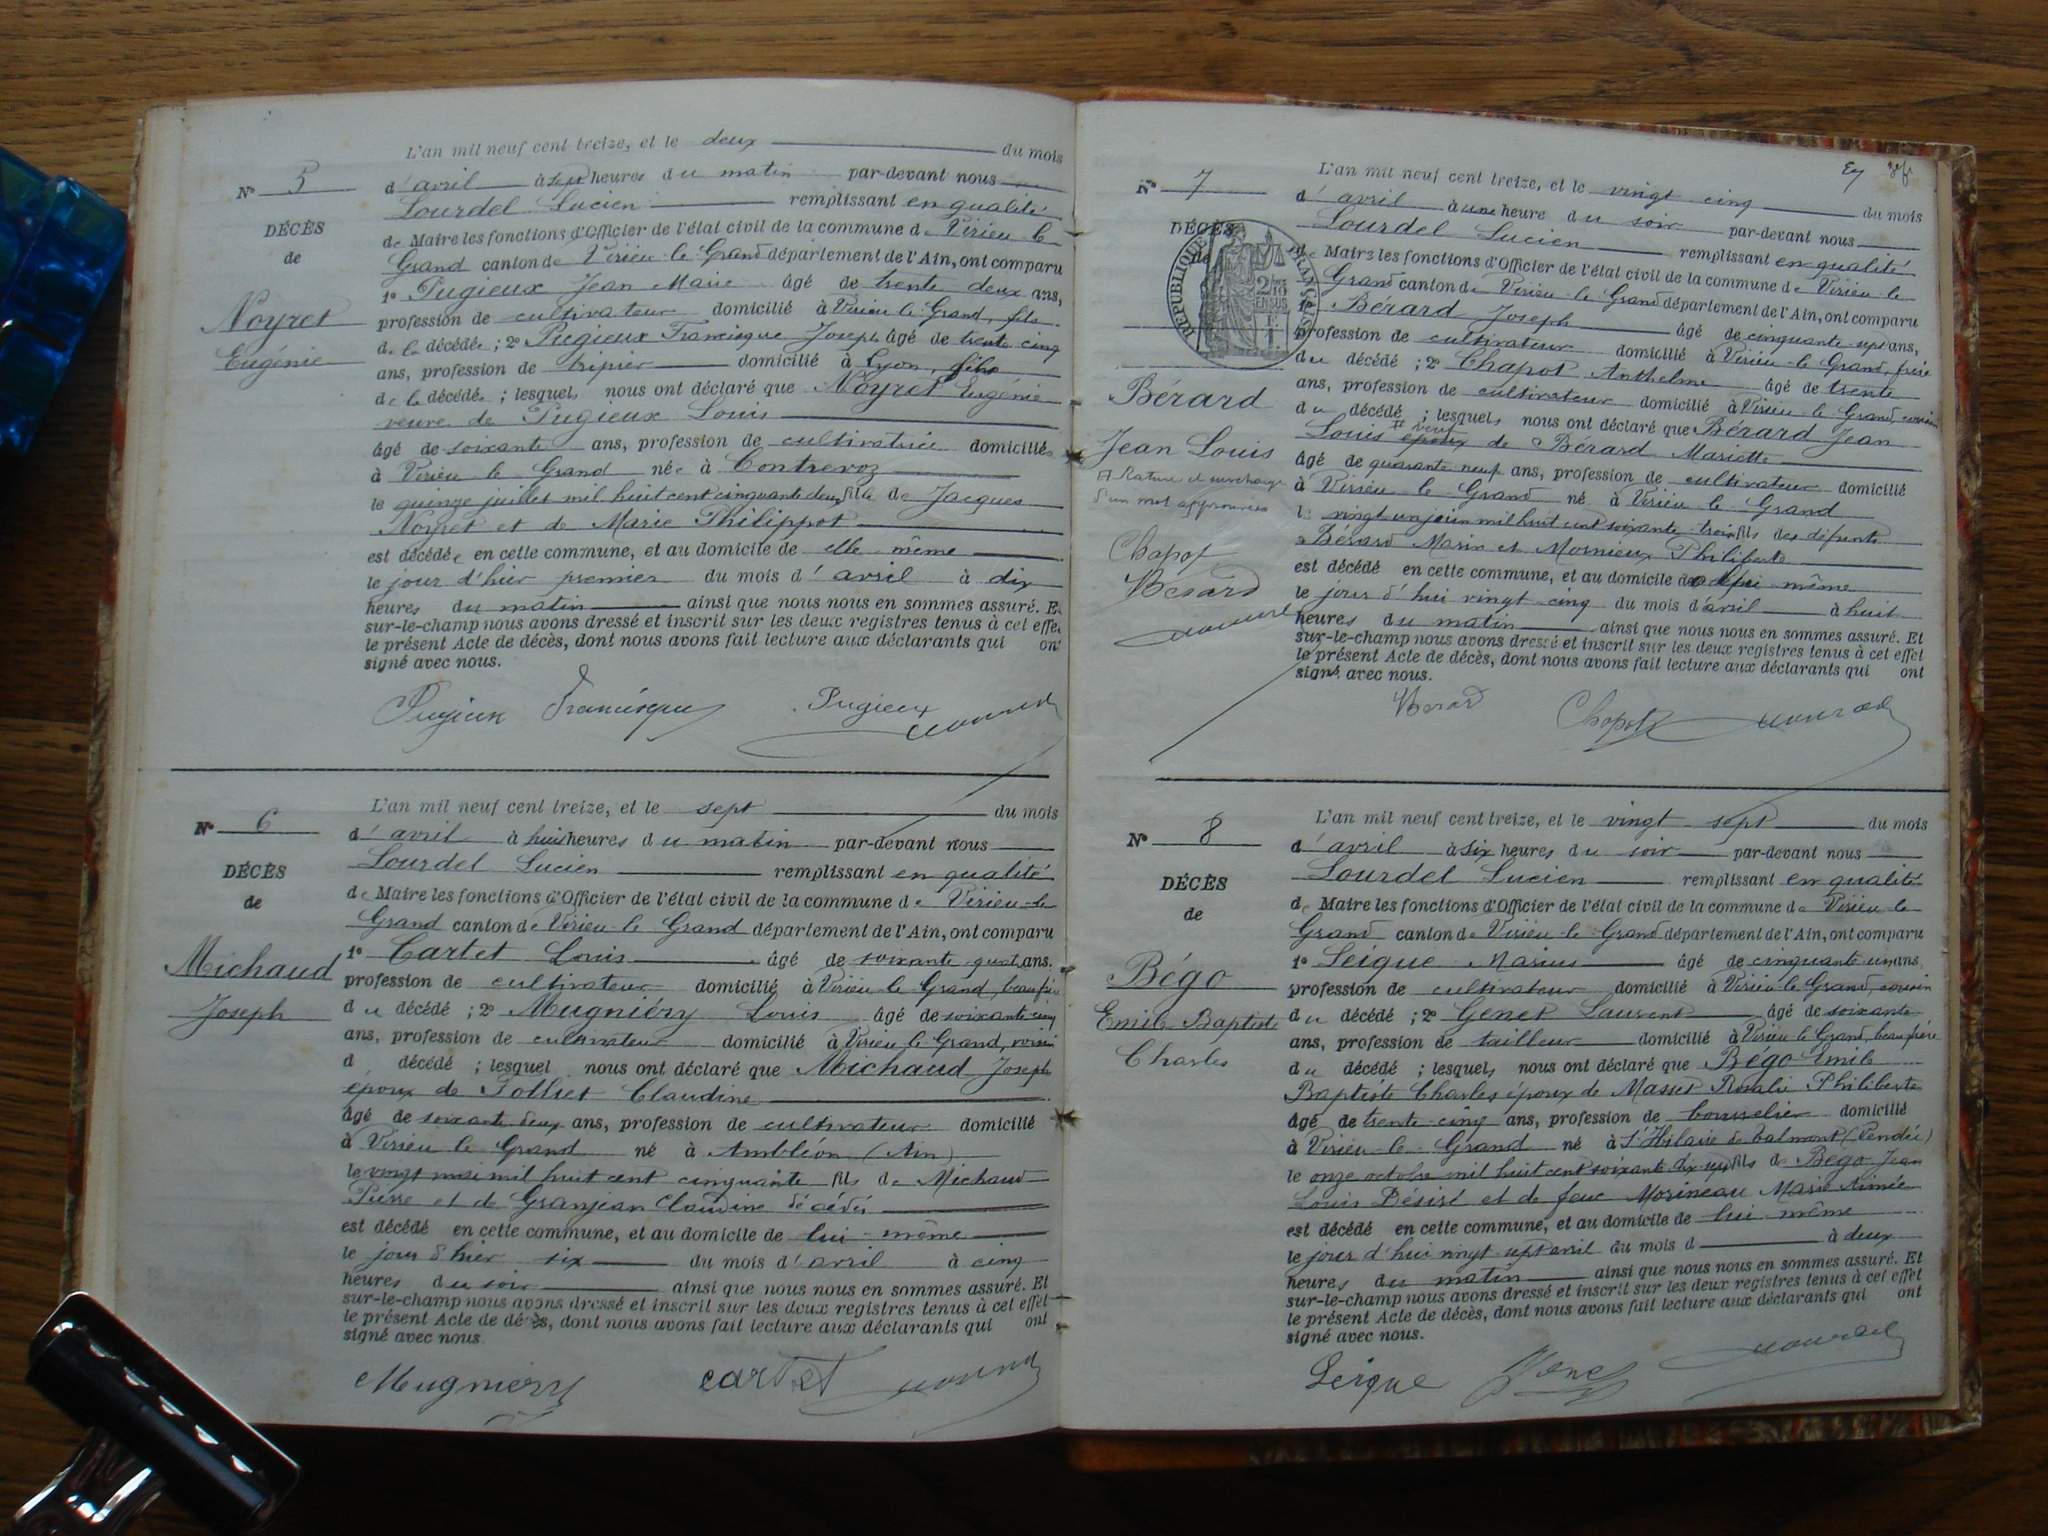 L'an mil neuf cent treize, et le deux du mois
N° 5
d'avril à sept heures du matin par-devant nous
Lourdel Lucien remplissant en qualité
DÉCÈS
de Maire les fonctions d'Officier de l'état civil de la commune de Virieu le
de
Grand canton de Virieu-le-Grand département de l'Ain, ont comparu
1° Pugieux Jean Marie âgé de trente deux ans,
Noyret
profession de cultivateur domicilié à Virieu le Grand, fils
Eugénie
de la décédée ; 2° Pugieux Francisque Joseph âgé de trente cinq
ans, profession de tripier domicilié à Lyon, fils
de la décédée ; lesquels nous ont déclaré que Noyret Eugénie
veuve de Pugieux Louis
âgé de soixante ans, profession de cultivatrice domiciliée
à Virieu le Grand née à Contrevoz
le quinze juillet mil huit cent cinquante deux fille de Jacques
Noyret et de Marie Philippot
est décédée en cette commune, et au domicile de elle même
le jour d'hier premier du mois d'avril à dix
heures du matin ainsi que nous nous en sommes assuré. Et
sur-le-champ nous avons dressé et inscrit sur les deux registres tenus à cet effet
le présent Acte de décès, dont nous avons fait lecture aux déclarants qui ont
signé avec nous.
Pugieux Francisque Pugieux
L'an mil neuf cent treize, et le sept du mois
N° 6
d'avril à huit heures du matin par-devant nous
Lourdel Lucien remplissant en qualité
DÉCÈS
de Maire les fonctions d'Officier de l'état civil de la commune de Virieu-le
de
Grand canton de Virieu-le Grand département de l'Ain, ont comparu
1° Cartet Louis âgé de soixante ans.
Michaud
profession de cultivateur domicilié à Virieu le Grand, beau frère
Joseph
du décédé ; 2° Mugniéry Louis âgé de soixante cinq
ans, profession de cultivateur domicilié à Virieu le Grand, voisin
d décédé ; lesquels nous ont déclaré que Michaud Joseph
époux de Tolliet Claudine
âgé de soixante deux ans, profession de cultivateur domicilié
à Virieu le Grand né à Ambléon (Ain)
le vingt mai mil huit cent cinquante fils de Michaud
Pierre et de Granjean Claudine décédés
est décédé en cette commune, et au domicile de lui-même
le jour d'hier six du mois d'avril à cinq
heures du soir ainsi que nous nous en sommes assuré. Et
sur-le-champ nous avons dressé et inscrit sur les deux registres tenus à cet effet
le présent Acte de décès, dont nous avons fait lecture aux déclarants qui ont
signé avec nous
Mugniery cartet
L'an mil neuf cent treize, et le vingt cinq du mois
N° 7
d'avril à une heure du soir par-devant nous
Lourdel Lucien remplissant en qualité
DÉCÈS
de
RÉPUBLIQUE FRANÇAISE
de Maire les fonctions d'Officier de l'état civil de la commune de Virieu-le
Grand canton de Virieu-le Grand département de l'Ain, ont comparu
1° Bérard Joseph âgé de cinquante sept ans,
profession de cultivateur domicilié à Virieu-le Grand, frère
du décédé ; 2° Chapot Anthelme âgé de trente
ans, profession de cultivateur domicilié à Virieu le Grand, cousin
Bérard
du décédé ; lesquels nous ont déclaré que Bérard Jean
Jean Louis
veuf
Louis époux de Bérard Mariette
âgé de quarante neuf ans, profession de cultivateur domicilié
Rature et surcharge
d'un mot approuvées
à Virieu le Grand né à Virieu le Grand
le vingt un juin mil huit cent soixante trois fils des défunts
Bérard Marin et Mornieux Philiberte
Chapot
Bérard
est décédé en cette commune, et au domicile de lui même
le jour d'hui vingt cinq du mois d'avril à huit
heures du matin ainsi que nous nous en sommes assuré. Et
sur-le-champ nous avons dressé et inscrit sur les deux registres tenus à cet effet
le présent Acte de décès, dont nous avons fait lecture aux déclarants qui ont
signé avec nous.
Bérard Chapot
L'an mil neuf cent treize, et le vingt sept du mois
N° 8
d'avril à six heures du soir par-devant nous
Lourdel Lucien remplissant en qualité
DÉCÈS
de Maire les fonctions d'Officier de l'état civil de la commune de Virieu-le
de
Grand canton de Virieu-le Grand département de l'Ain, ont comparu
1° Leique Marius âgé de cinquante un ans,
Bégo
profession de cultivateur domicilié à Virieu-le Grand, cousin
Emile Baptiste
du décédé ; 2° Genet Laurent âgé de soixante
Charles
ans, profession de tailleur domicilié à Virieu le Grand, beau frère
du décédé ; lesquels nous ont déclaré que Bégo Emile
Baptiste Charles époux de Masset Rosalie Philiberte
âgé de trente cinq ans, profession de bourrelier domicilié
à Virieu-le-Grand né à St Hilaire de Talmont (Vendée)
le onze octobre mil huit cent soixante dix sept fils de Bégo Jean
Louis Désiré et de feue Morineau Marie Aimée
est décédé en cette commune, et au domicile de lui même
le jour d'hui vingt sept avril du mois d à deux
heures du matin ainsi que nous nous en sommes assuré. Et
sur-le-champ nous avons dressé et inscrit sur les deux registres tenus à cet effet
le présent Acte de décès, dont nous avons fait lecture aux déclarants qui ont
signé avec nous.
Leique Genet